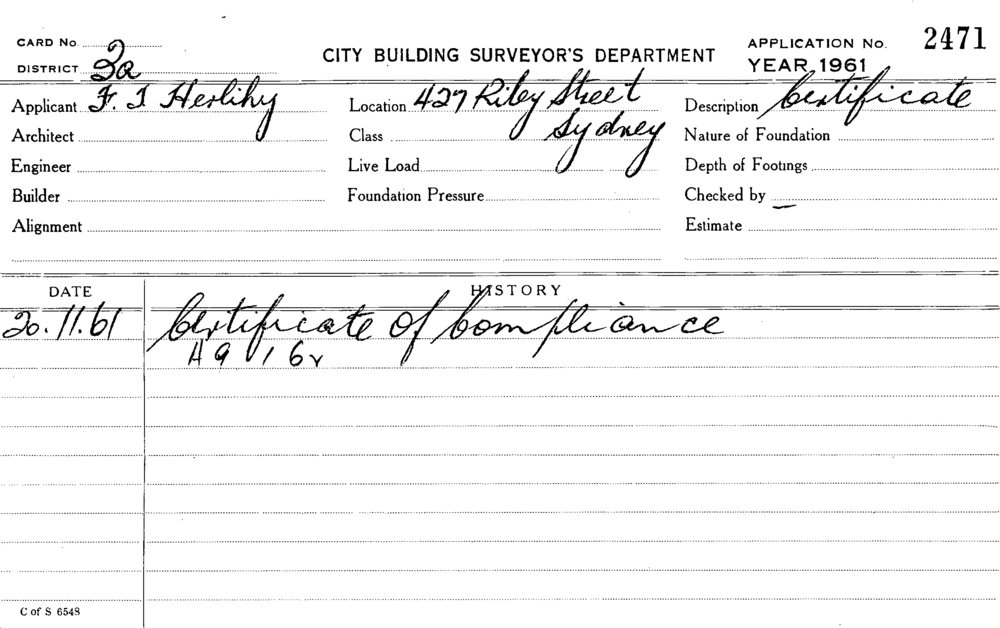 CARD No.
DISTRICT 2a
CITY BUILDING SURVEYOR'S DEPARTMENT
APPLICATION No. 2471
YEAR, 1961
Applicant F. J Herlihy
Location 427 Riley Street
Sydney
Description Certificate
Architect
Class
Nature of Foundation
Engineer
Live Load
Depth of Footings
Builder
Foundation Pressure
Checked by —
Alignment
Estimate
DATE
HISTORY
20.11.61 Certificate of Compliance
C of S 6548